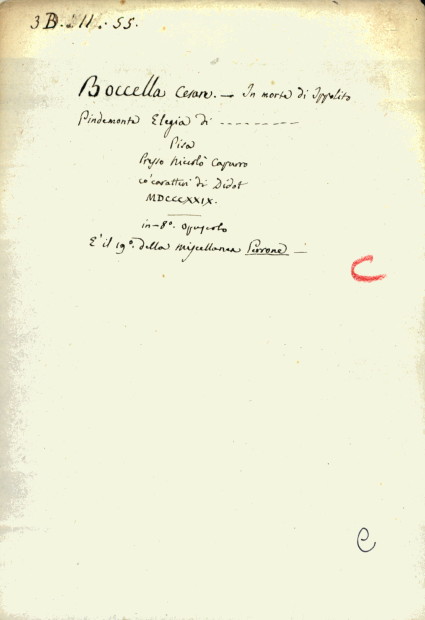 3 B. 11. 55.
Boccella Cesare. — In morte di Ippolito
Pindemonte Elegia di --------
Pisa
Presso Niccolò Capurro
co' caratteri di Didot
MDCCCXXIX.
in-8º. opuscolo
E' il 19º. della Miscellanea Perrone —
C
C